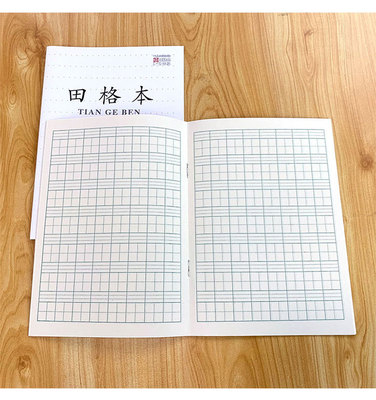 田格本
TIAN GE BEN